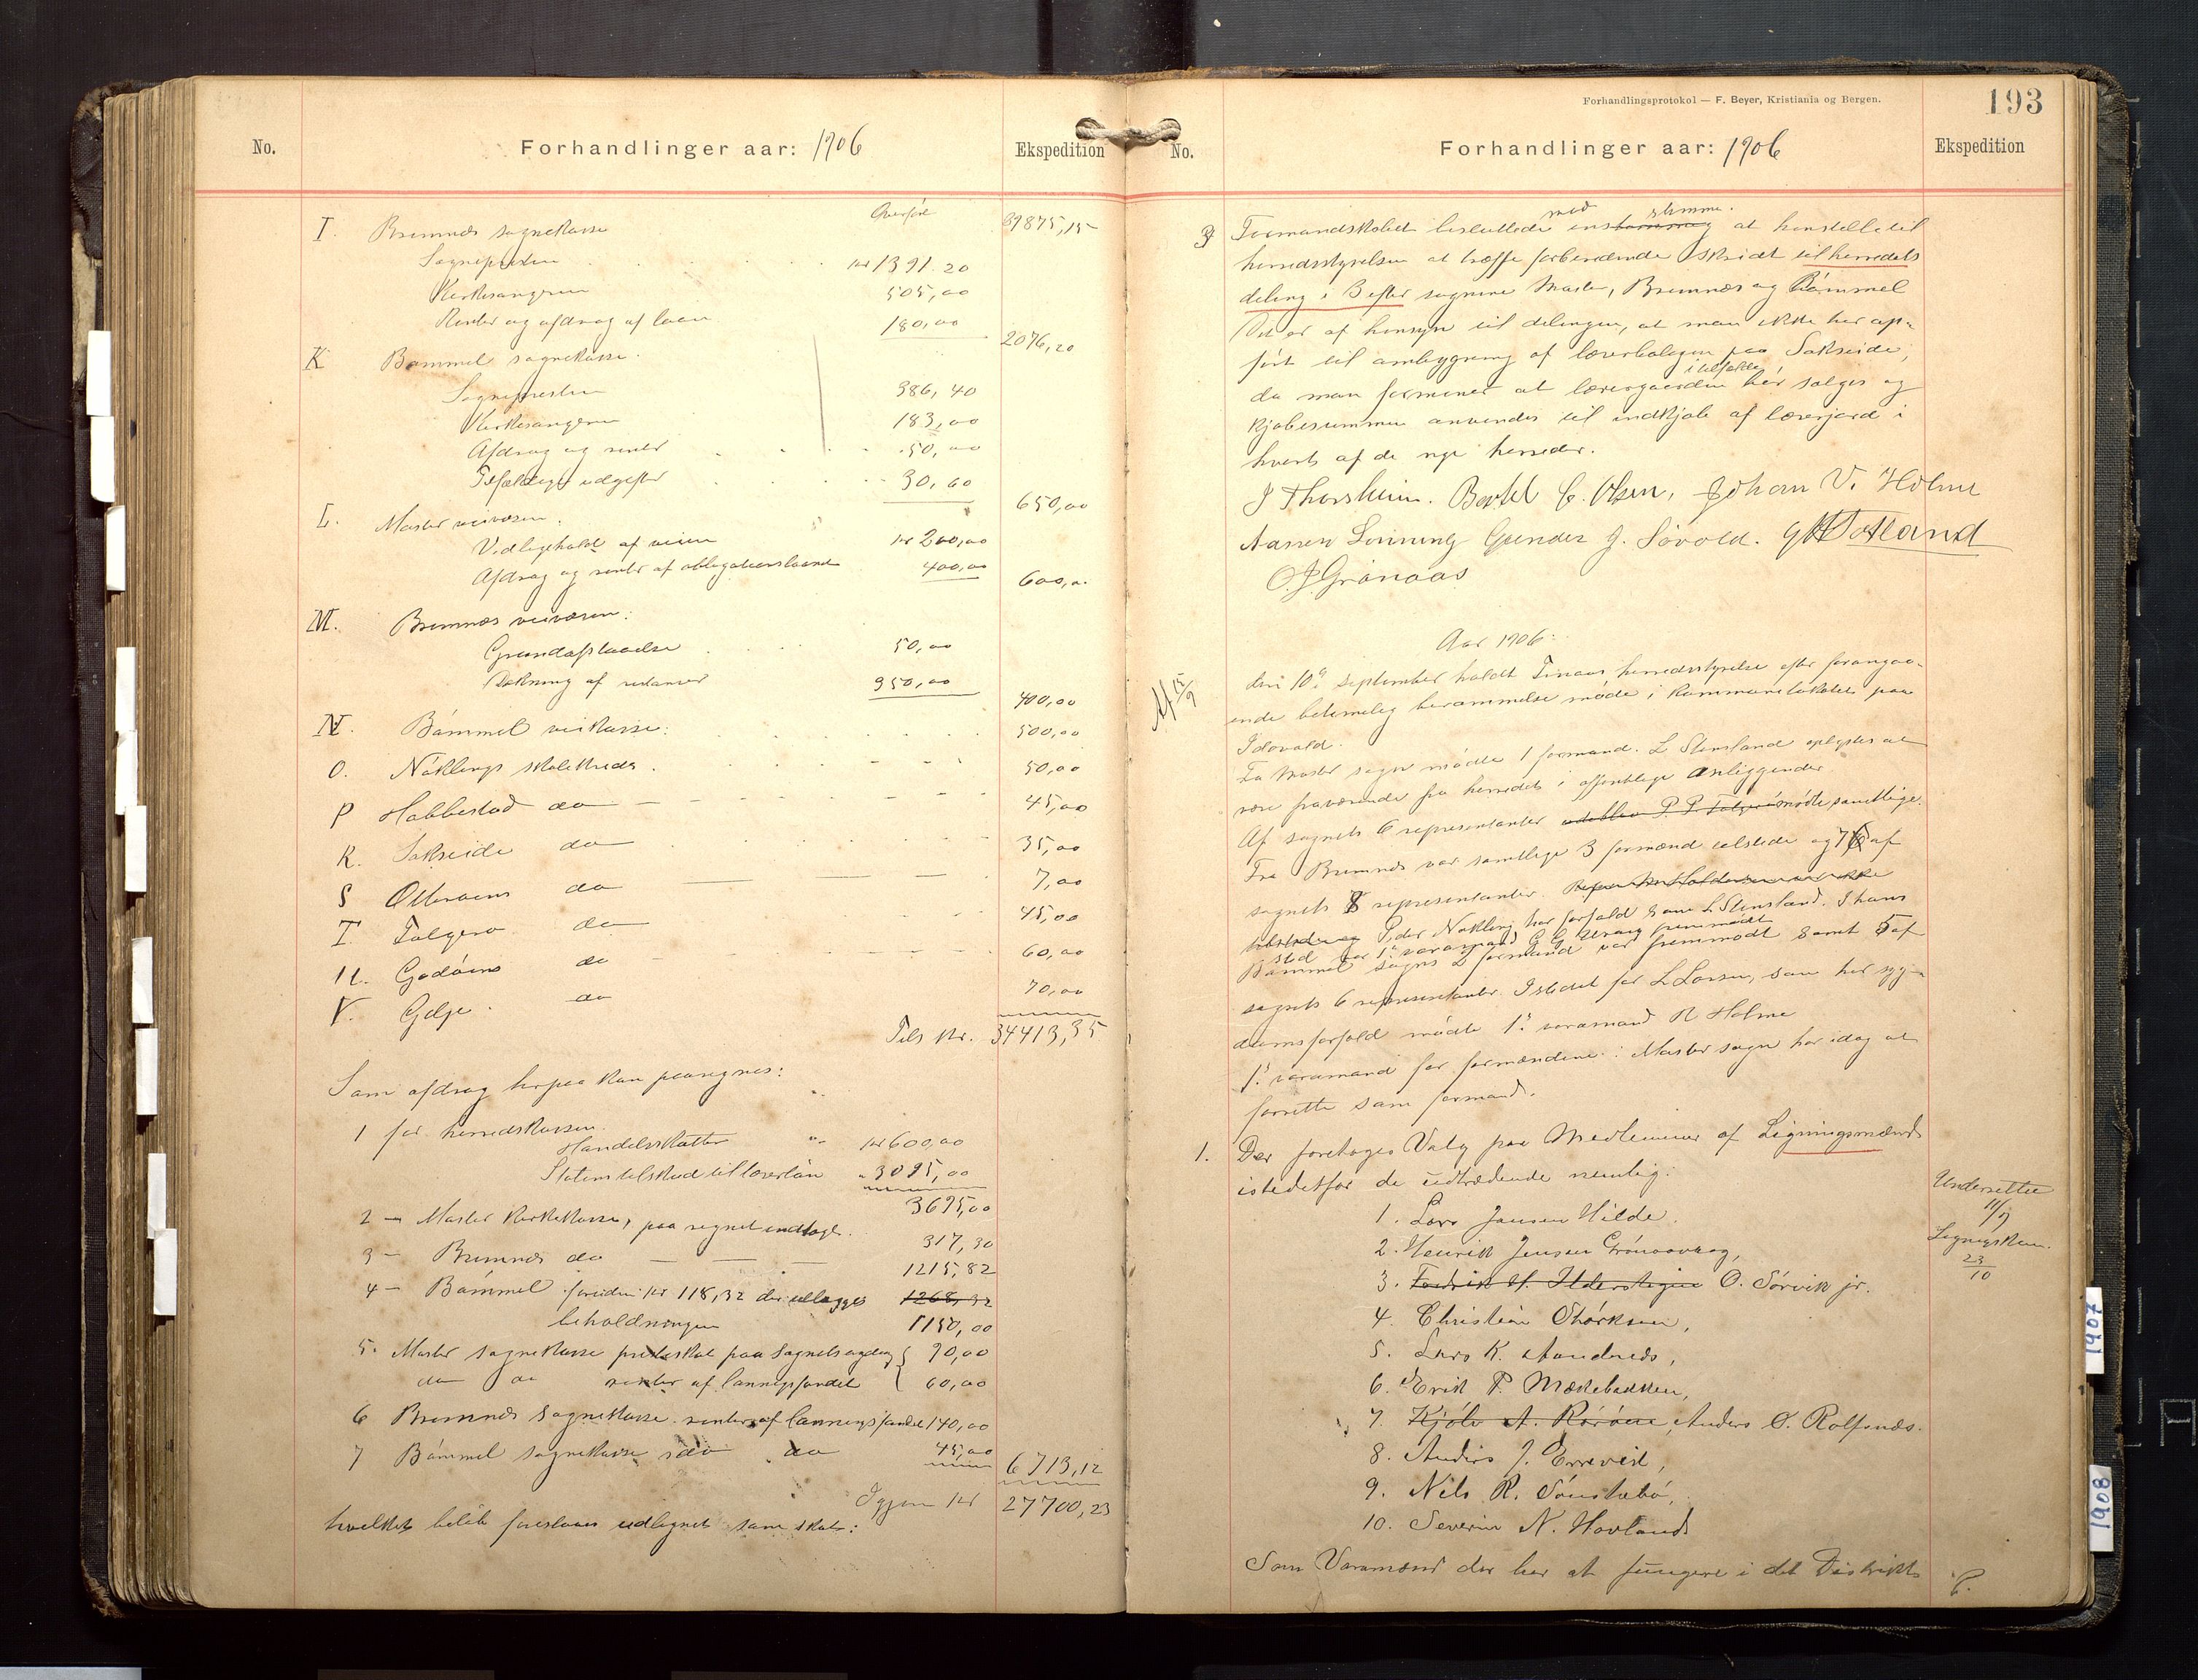 No.
Forhandlinger aar: 1906
Ekspedition
Overført 29875,15
I. Bremnes sognekasse
Sognepresten kr 1391.20
Kirkesangeren 505,00
Renter og afdrag af laan 180,00
2076,20
K Bømmel sognekasse.
Sognepresten 386,40
Kirkesangeren 183,00
Afdrag og renter 50,00
Tilfældige udgifter 30,60
650,00
L. Moster veivæsen.
Vedligehold af veien kr 200,00
Afdrag og renter af obligationslaanet 400,00
600,00
M. Bremnæs veivæsen:
Grundafstaaelse 50,00
Dækning af redancer 350,00
400,00
N. Bømmel veikasse: 500,00
O. Nøklings skolekreds 50,00
P Habbestad do 45,00
R. Sakseide do 35,00
S Otteraaens do 7,00
T. Folgerø do 45,00
U. Godøens do 60,00
V. Gilje. do 70,00
Tils kr. 34413,35
Som afdrag herpaa kan paaregnes:
1 for herredskassen.
Handelsskatter kr 600,00
Statens tilskud til lærerløn - 3095,00
3695,00
2 - Moster kirkekasse, paaregnet indtægt. 317,30
3 - Bremnæs do 1215,82
4 - Bømmel foruden kr 118,32 der tillægges 1268,32
beholdningen 1150,00
5. Moster sognekasse presteskat paa sognets 90,00
do do renter af lønningsfondet 60,00
6 Bremnæs sognekasse renter af lønningsfondet 140,00
7 Bømmel sognekasse do do 45,00
6713,12
Igjen kr 27700,23
hvilket beløb foreslaaes udlignet som skat:
Forhandlingsprotokol — F. Beyer, Kristiania og Bergen.
193
No.
Forhandlinger aar: 1906
Ekspedition
3 Formandskabet besluttede enstemmig at henstille til
herredsstyrelsen at træffe forberedende skridt til herredets
deling i 3 efter sognene Moster, Bremnæs og Bømmel
Det er af hensyn til delingen, at man ikke har op-
ført til ombygning af lærerboligen paa Sakseide,
da man formener at lærergaarden her i tilfælde sælges og
kjøbesummen anvendes til indkjøb af lærerjord i
hvert af de nye herreder.
J Thorsheim. Bertel C. Olsen, Johan V. Holme
Aamen Lønning Gunder J. Søvold. G Totland
O. J. Grønaas
Aar 1906:
Af 15/9
den 10de september holdt Finaas herredsstyrelse efter foregaa-
ende betimelig berammelse møde i kommunelokalet paa
Idevold.
Fra Moster sogn mødte 1 formand. L Stensland oplystes at
være fraværende fra herredet i offentlige anliggender
Af sognets 6 representanter udeblev P. P. Folgerø mødte samtlige.
Fra Bremnæs var samtlige 3 formænd tilstede og 7 af
sognets 8 representanter.
Peder Nøkling har forfald som L Stensland. I hans
sted var 1ste varamand fremmødt
Bømmel sogns 2 formænd var fremmødt samt 5 af
sognets 6 representanter. Istedet for L Larsen, som har syg-
domsforfald mødte 1ste varamand R Holme
1ste varamand for formændene i Moster sogn har idag at
forrette som formand.
1. Der foretoges Valg paa Medlemmer af Ligningsmænd
istedetfor de udtrædende nemlig:
1. Lars Jansen Hilde.
2. Henrik Jensen Grønaavaag,
3. Fredrik H. O. Sørvik jr.
4. Christian Størksen,
5. Lars K. Aandneds,
6. Erik P. Mækebakken,
7. Kjølv A. Rørøen, Anders O. Rolfsnæs.
8. Anders J. Ersvær,
9. Nils R. Sønstabø,
10. Severin N. Hovland
Underrettet
11/9
Ligningskom.
23/10
Som Varamænd der har at fungere i det Distrikts
1907
1908